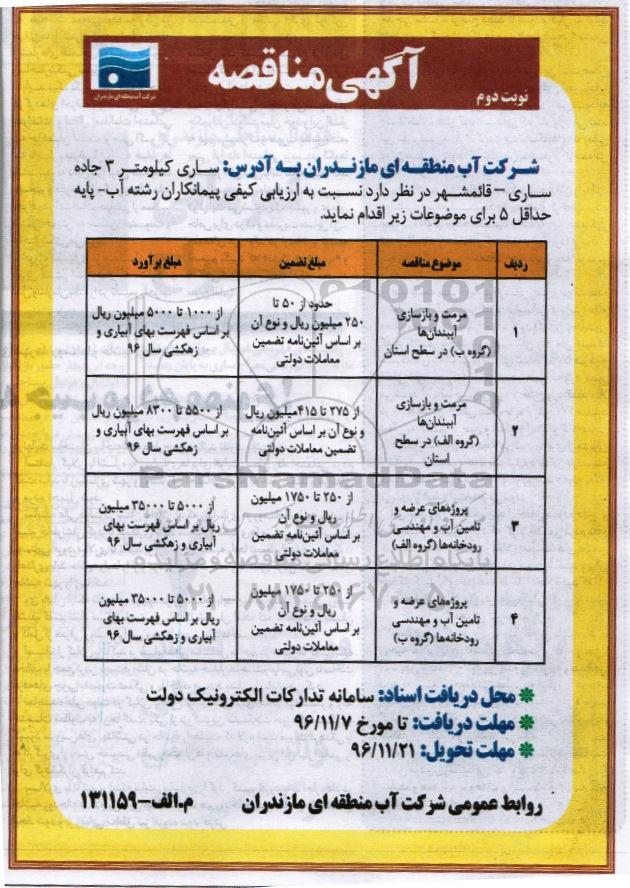 آگهی مناقصه
نوبت دوم
شرکت آب منطقه ای مازندران
شرکت آب منطقه ای مازندران به آدرس: ساری کیلومتر ۳ جاده
ساری – قائمشهر در نظر دارد نسبت به ارزیابی کیفی پیمانکاران رشته آب- پایه
حداقل ۵ برای موضوعات زیر اقدام نماید.
ردیف
موضوع مناقصه
مبلغ تضمین
مبلغ برآورد
۱
مرمت و بازسازی
آببندان‌ها
(گروه ب) در سطح استان
حدود از ۵۰ تا
۲۵۰ میلیون ریال و نوع آن
بر اساس آئین‌نامه تضمین
معاملات دولتی
از ۱۰۰۰ تا ۵۰۰۰ میلیون ریال
بر اساس فهرست بهای آبیاری و
زهکشی سال ۹۶
۲
مرمت و بازسازی
آببندان‌ها
(گروه الف) در سطح
استان
از ۲۷۵ تا ۴۱۵میلیون ریال
و نوع آن بر اساس آئین‌نامه
تضمین معاملات دولتی
از ۵۵۰۰ تا ۸۳۰۰ میلیون ریال
بر اساس فهرست بهای آبیاری و
زهکشی سال ۹۶
۳
پروژه‌های عرضه و
تامین آب و مهندسی
رودخانه‌ها (گروه الف)
از ۲۵۰ تا ۱۷۵۰ میلیون
ریال و نوع آن
بر اساس آئین‌نامه تضمین
معاملات دولتی
از ۵۰۰۰ تا ۳۵۰۰۰ میلیون
ریال بر اساس فهرست بهای
آبیاری و زهکشی سال ۹۶
۴
پروژه‌های عرضه و
تامین آب و مهندسی
رودخانه‌ها (گروه ب)
از ۲۵۰ تا ۱۷۵۰ میلیون
ریال و نوع آن
بر اساس آئین‌نامه تضمین
معاملات دولتی
از ۵۰۰۰ تا ۳۵۰۰۰ میلیون
ریال بر اساس فهرست بهای
آبیاری و زهکشی سال ۹۶
ParsNamadData
محل دریافت اسناد: سامانه تدارکات الکترونیک دولت
مهلت دریافت: تا مورخ ۹۶/۱۱/۷
مهلت تحویل: ۹۶/۱۱/۲۱
روابط عمومی شرکت آب منطقه ای مازندران
م.الف-۱۳۱۱۵۹